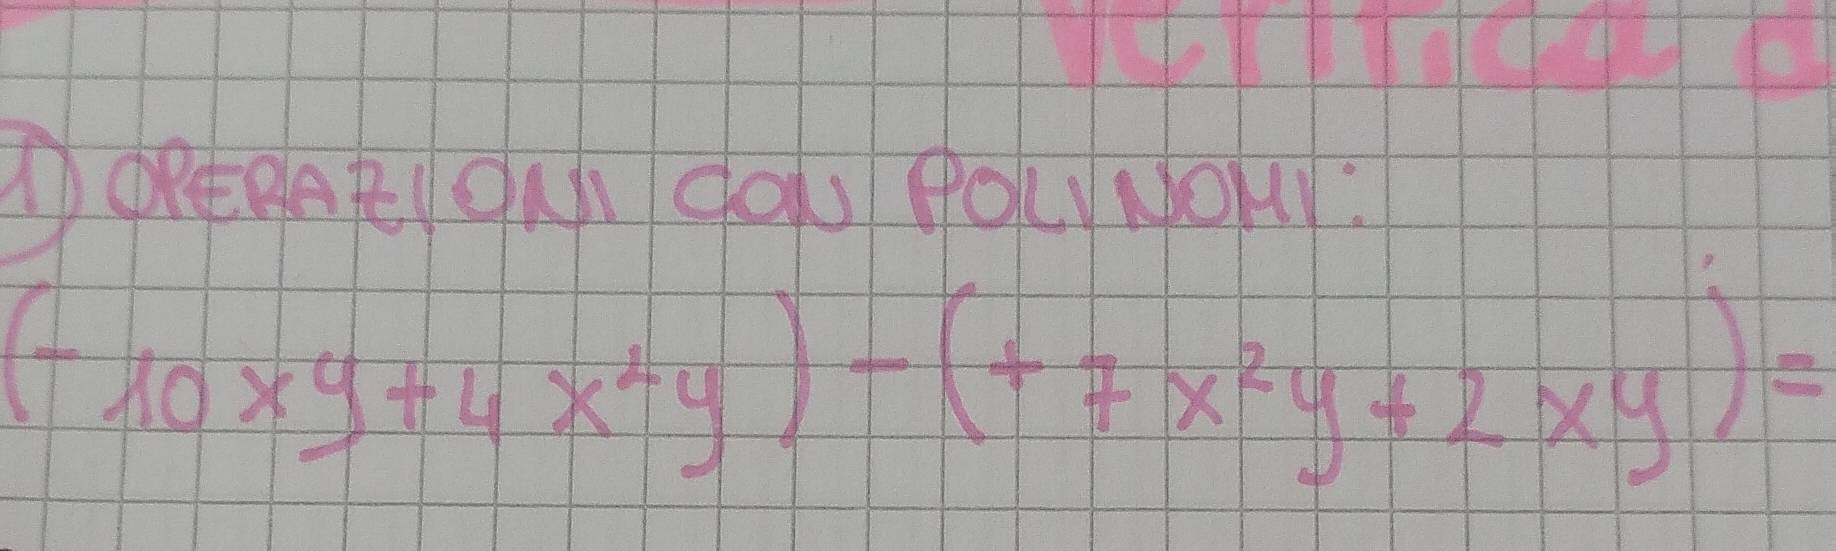 Verifica d
1) OPERAZIONI CON POLINOMI:
(-10xy+4x²y)-(+7x²y+2xy)=